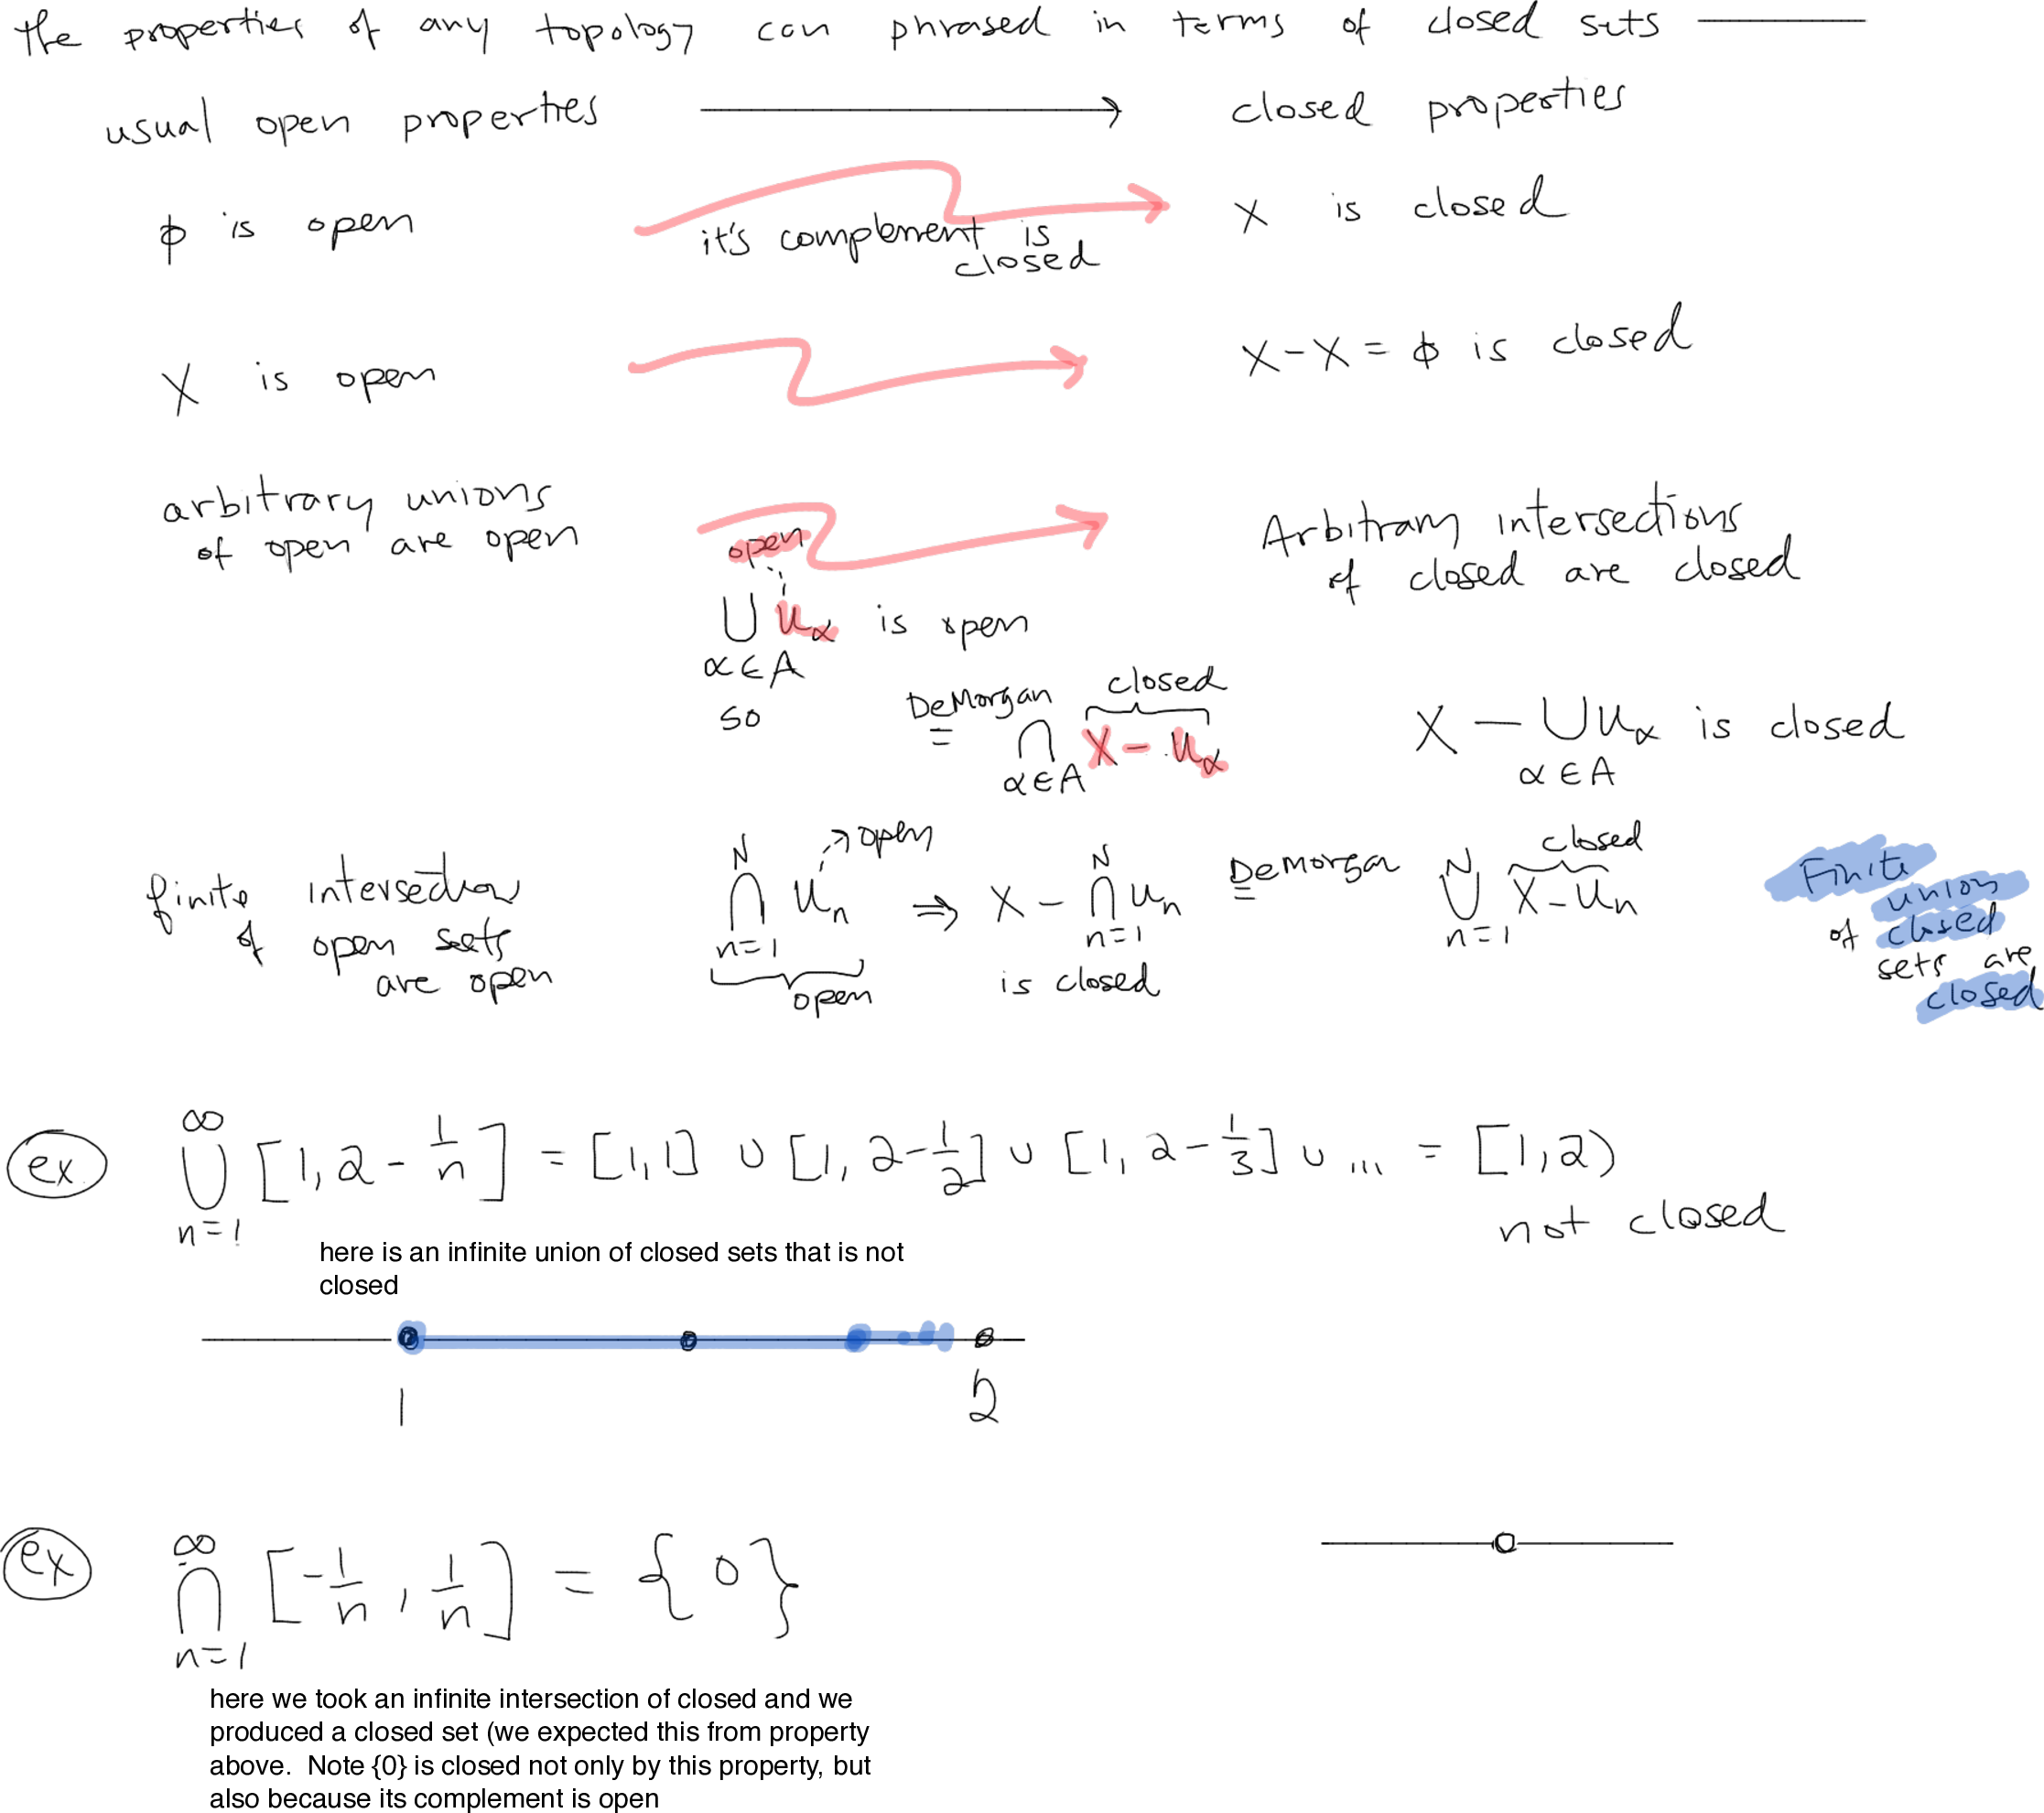 the properties of any topology can phrased in terms of closed sets
usual open properties → closed properties
ϕ is open it's complement is closed X is closed
X is open X - X = ϕ is closed
arbitrary unions of open are open
open
⋃ U_α is open
α∈A
so
Arbitrary intersections of closed are closed
DeMorgan = ⋂_{α∈A} X - U_α closed
X - ⋃ U_α is closed
α∈A
finite intersection of open sets are open
⋂_{n=1}^{N} U_n open open ⇒ X - ⋂_{n=1}^{N} U_n is closed DeMorgan = ⋃_{n=1}^{N} X - U_n closed
Finite union of closed sets are closed
ex ⋃_{n=1}^{∞} [1, 2 - 1/n] = [1,1] ∪ [1, 2-1/2] ∪ [1, 2-1/3] ∪ ... = [1,2)
not closed
here is an infinite union of closed sets that is not
closed
1 2
ex ⋂_{n=1}^{∞} [-1/n, 1/n] = {0}
here we took an infinite intersection of closed and we
produced a closed set (we expected this from property
above. Note {0} is closed not only by this property, but
also because its complement is open